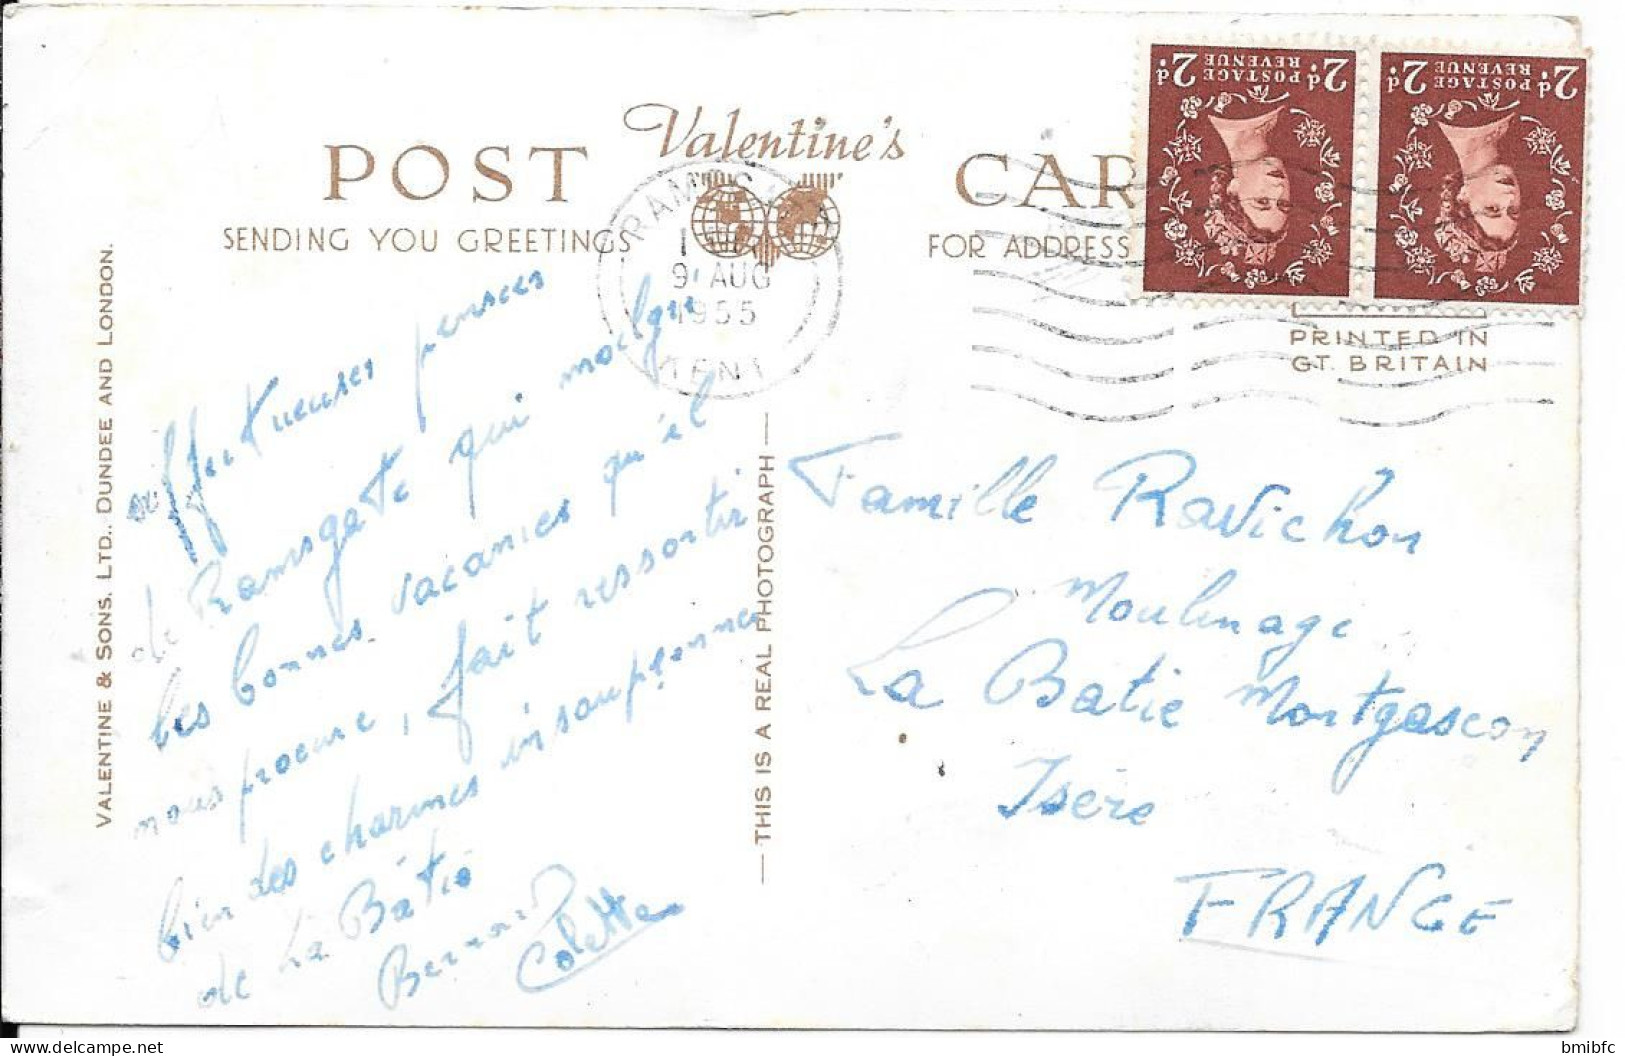 POST Valentine's CAR
SENDING YOU GREETINGS FOR ADDRESS
2d POSTAGE REVENUE 2d
2d POSTAGE REVENUE 2d
9 AUG
1955
PRINTED IN
GT. BRITAIN
VALENTINE & SONS, LTD., DUNDEE AND LONDON.
THIS IS A REAL PHOTOGRAPH
affectueuses pensées
de Ramsgate qui malgré
les bonnes vacances qu'il
nous procure, fait ressortir
bien des charmes insoupçonnés
de La Bâtie
Bernard
Colette
Famille Ravichon
Moulinage
La Batie Montgascon
Isère
FRANCE
bmibfc